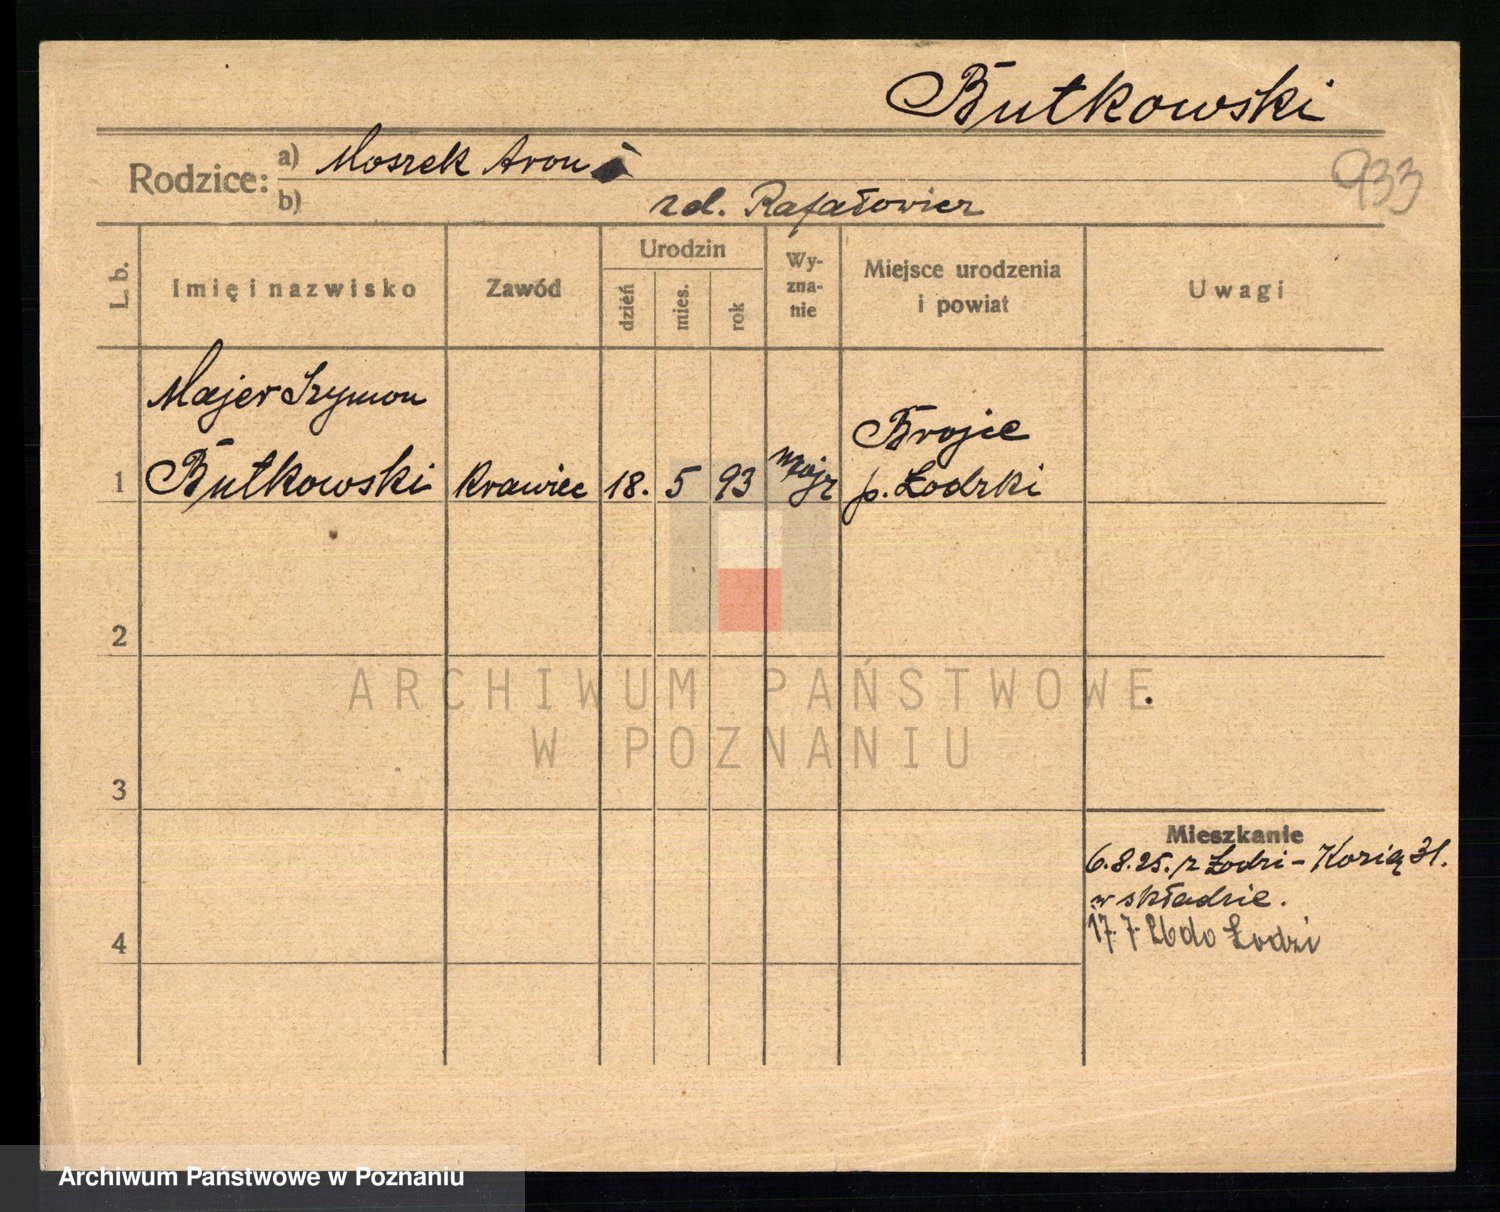 Butkowski
933
Rodzice: a) Moszek Aron
b) zd. Rafałowicz
L. b.
Imię i nazwisko
Zawód
Urodzin
dzień
mies.
rok
Wy-
zna-
nie
Miejsce urodzenia
i powiat
Uwagi
1
Majer Szymon
Butkowski
krawiec
18.
5
93
mojż
Brojce
p. Łodzki
2
3
4
Mieszkanie
6.8.25. z Łodzi – Kozią 31.
w składzie.
17.7.26 do Łodzi
ARCHIWUM PAŃSTWOWE
W POZNANIU
Archiwum Państwowe w Poznaniu